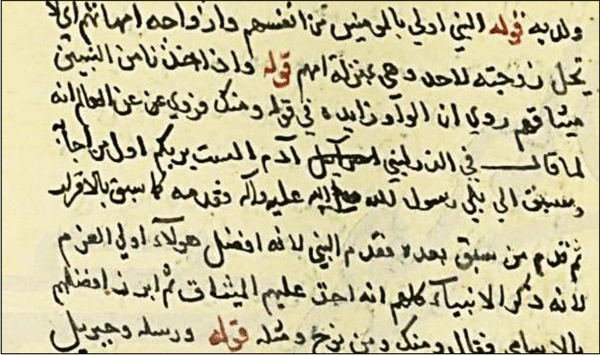 ولديه قوله النبي اولي بالمومنين من انفسهم وازواجه امهاتهم اي لا
تحل زوجته لاحد وهي بمنزلة امهم قوله واذ اخذنا من النبيين
ميثاقهم روي ان الواو زايده في قوله ومنك وروي عن العالم انه
لما قال في الذر لبني آدم الست بربكم اول من اجابه
وسبق الي بلي رسول لله صلي الله عليه وآله وقدمه كما سبق بالاقرار
ثم قدم من سبق بعده فقدم النبي لانه افضل هولآء اولي العزم
لانه ذكر الانبياء كلهم انه اخذ عليهم الميثاق ثم ابرز افضلهم
بالاسامي فقال ومنك ومن نوح ومثله قوله ورسله وجبريل